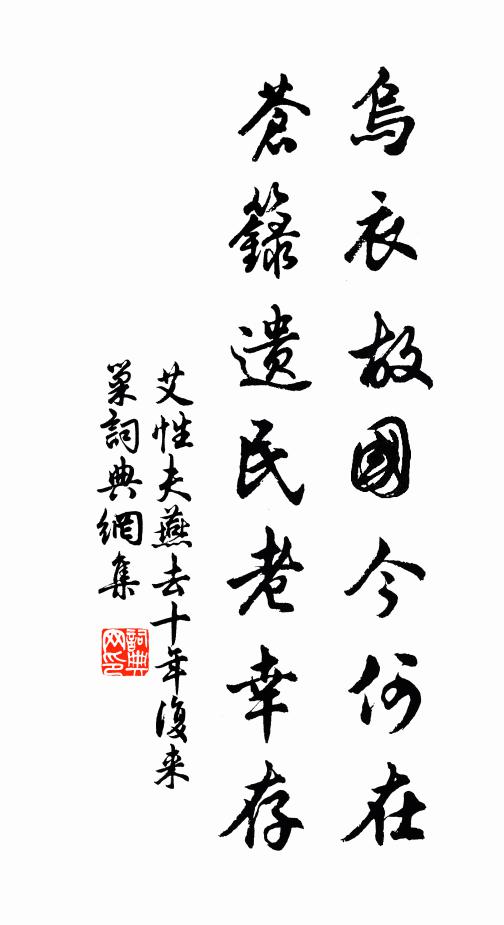 烏衣故國今何在
蒼籙遺民老幸存
艾性夫燕去十年復来
巢詞典網集
詞典网印